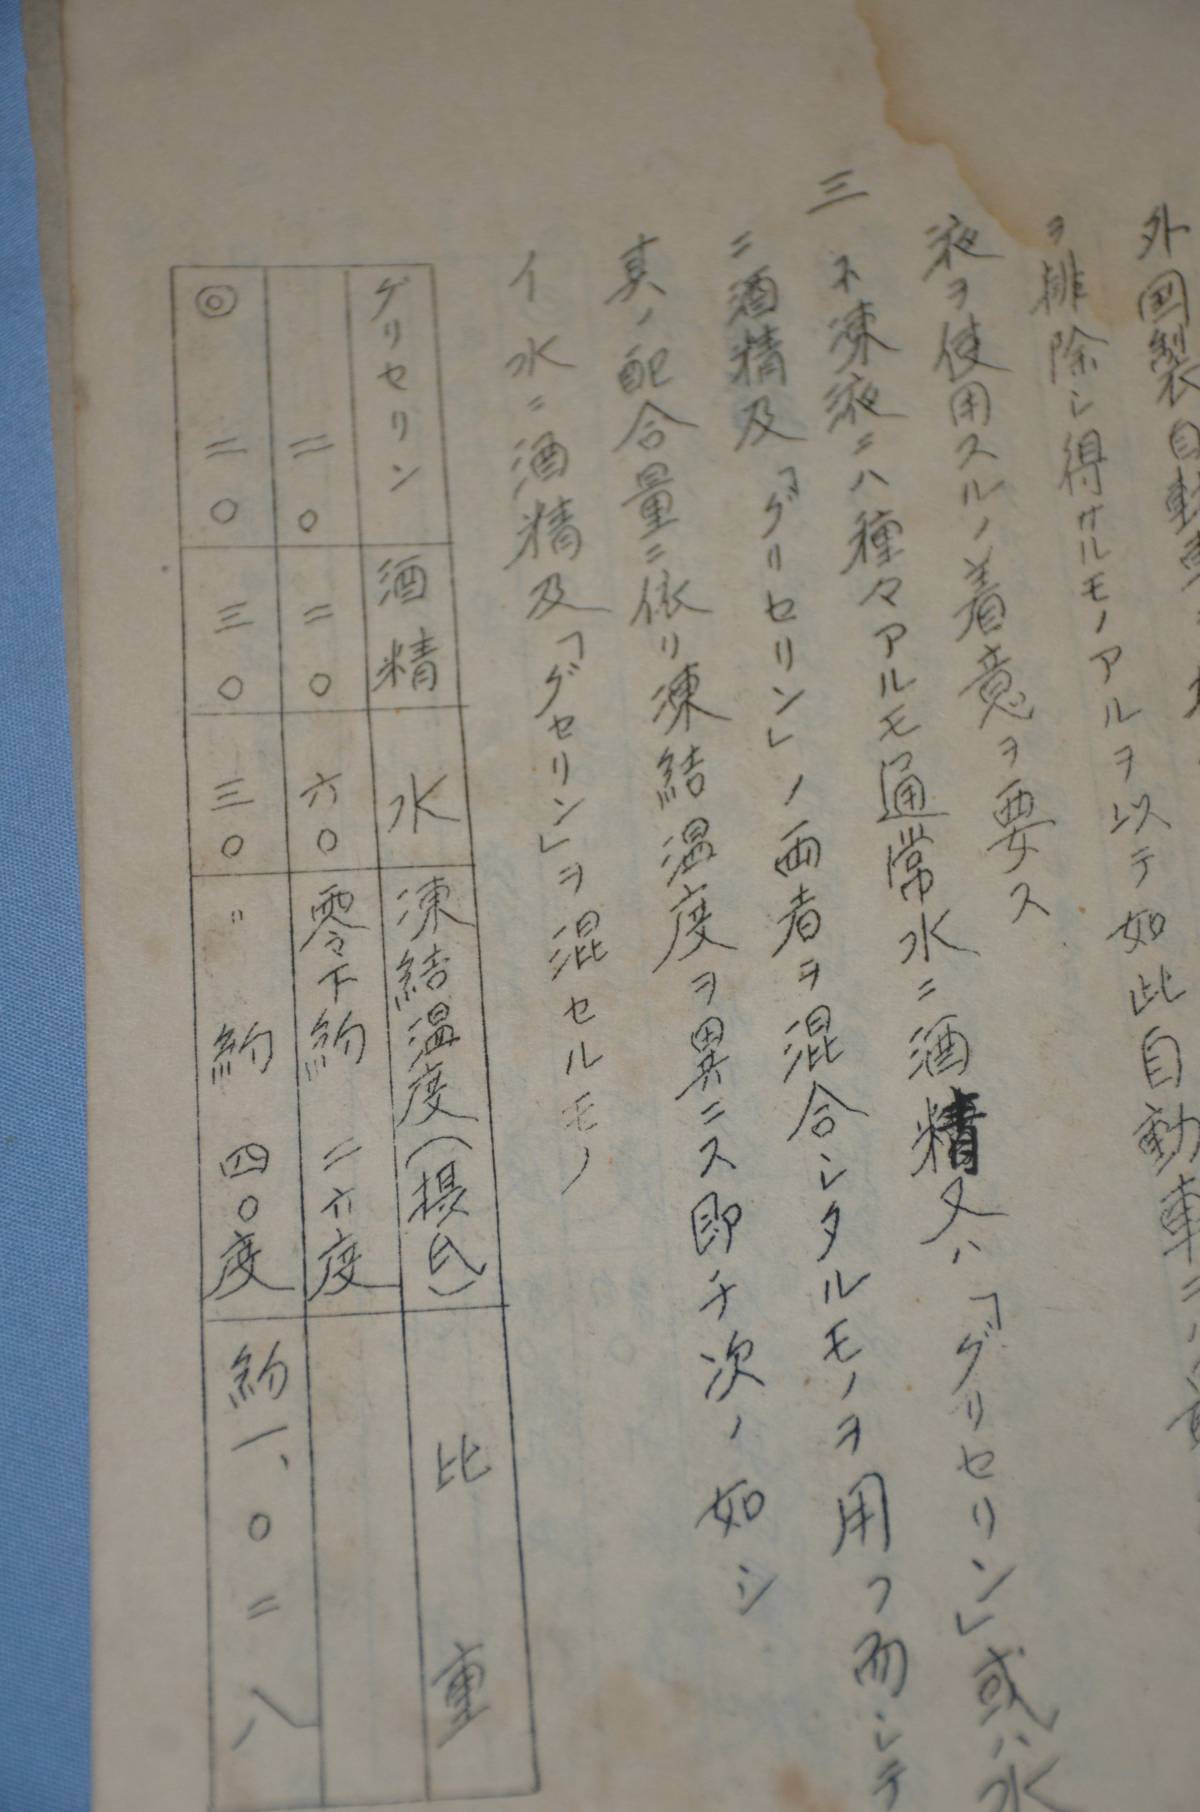 外国製自動車
ヲ排除シ得サルモノアルヲ以テ如此自動車ニハ
液ヲ使用スルノ着意ヲ要ス
三 不凍液ニハ種々アルモ通常水ニ酒精又ハ「グリセリン」或ハ水
ニ酒精及「グリセリン」ノ両者ヲ混合シタルモノヲ用フ而シテ
其ノ配合量ニ依リ凍結温度ヲ異ニス即チ次ノ如シ
イ 水ニ酒精及「グセリン」ヲ混セルモノ
グリセリン 酒精 水 凍結温度(摂氏) 比重
二〇 二〇 六〇 零下約 二六度
◎ 二〇 三〇 三〇 〃 約 四〇度 約一、〇二八